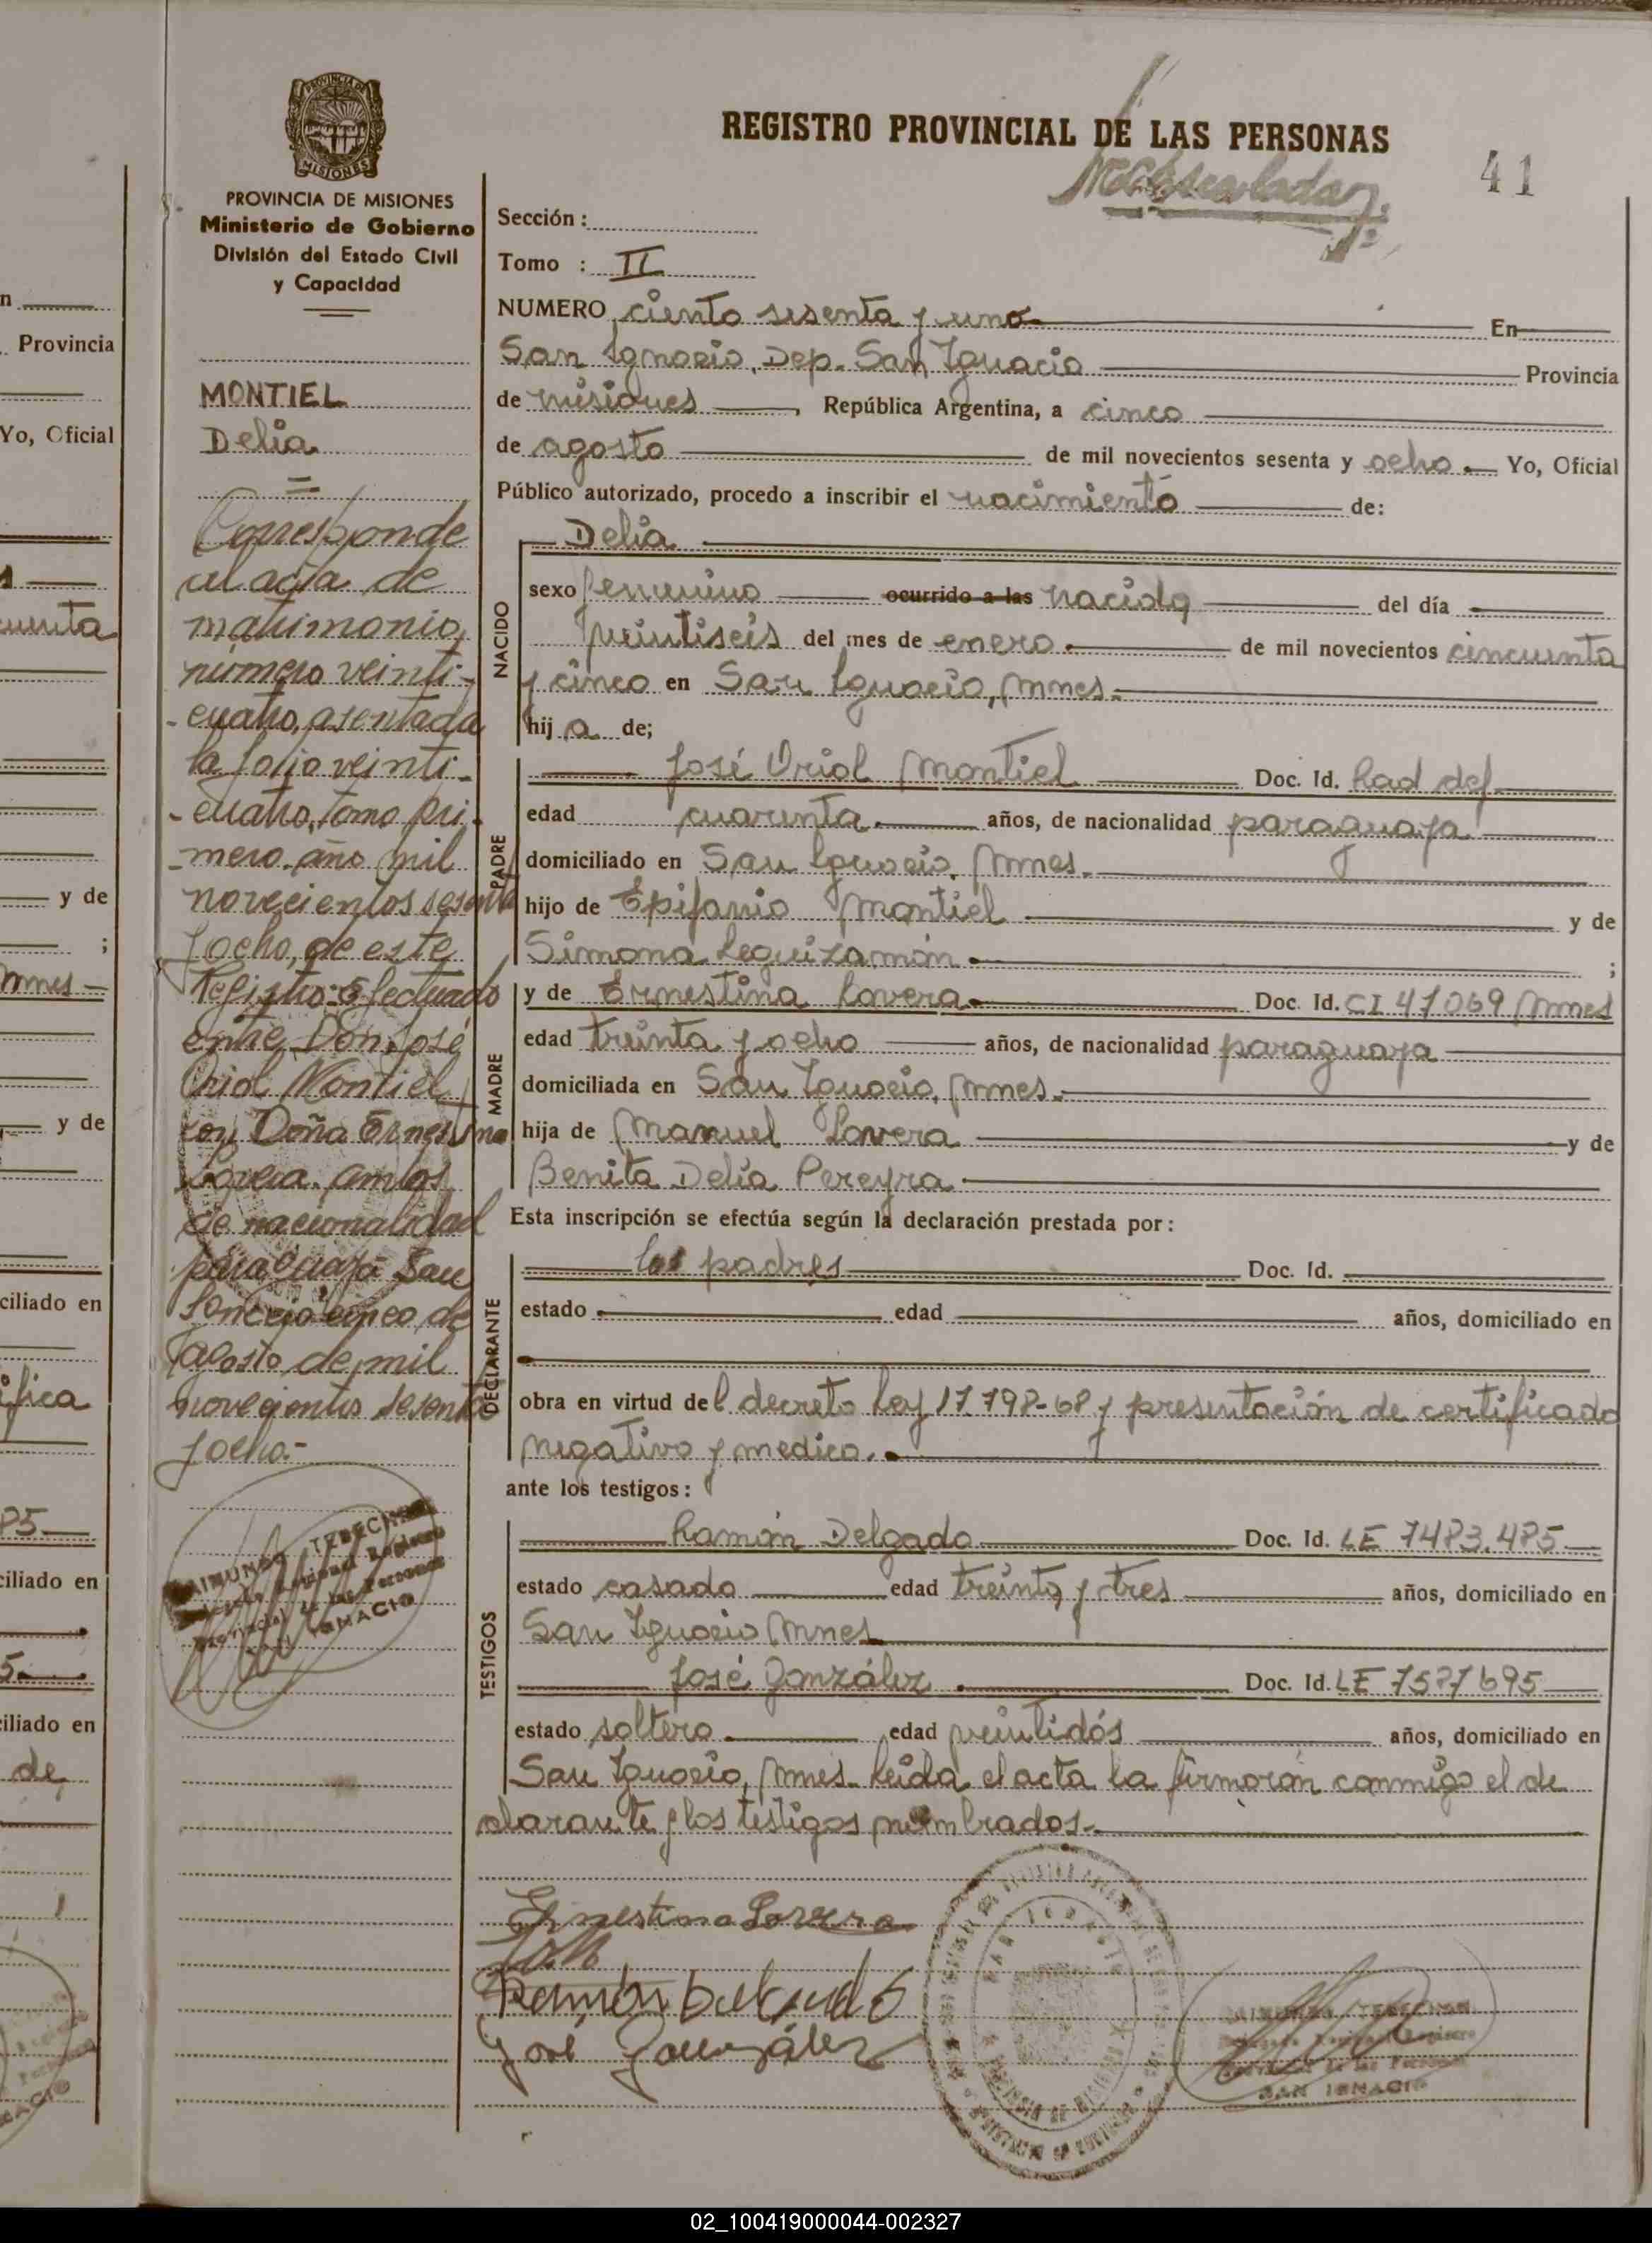 REGISTRO PROVINCIAL DE LAS PERSONAS
41
PROVINCIA DE MISIONES
Ministerio de Gobierno
División del Estado Civil
y Capacidad
MONTIEL
Delia
Corresponde
al acta de
matrimonio,
número veinti-
-cuatro, asentada
la folio veinti-
-cuatro, tomo pri-
-mero. año mil
novecientos sesenta
y ocho, de este
Registro. Efectuado
entre Don José
Oriol Montiel
con Doña Ernestina
Lovera. ambos
de nacionalidad
paraguaya San
Ignacio cinco de
agosto de mil
novecientos sesenta
y ocho.-
SAN IGNACIO
Sección :
Tomo : II
NUMERO ciento sesenta y uno En
San Ignacio, Dep. San Ignacio Provincia
de misiones, República Argentina, a cinco
de agosto de mil novecientos sesenta y ocho. Yo, Oficial
Público autorizado, procedo a inscribir el nacimiento de:
NACIDO
Delia
sexo femenino ocurrido a las nacida del día
veintiseis del mes de enero. de mil novecientos cincuenta
y cinco en San Ignacio, Mnes.
hij a de;
PADRE
José Oriol Montiel Doc. Id. Rad def
edad cuarenta. años, de nacionalidad paraguaya
domiciliado en San Ignacio, Mnes.
hijo de Epifanio Montiel y de
Simona Leguizamón ;
MADRE
y de Ernestina Lovera Doc. Id. CI 47069 Mnes
edad treinta y ocho años, de nacionalidad paraguaya
domiciliada en San Ignacio, Mnes.
hija de Manuel Lovera y de
Benita Delia Pereyra
Esta inscripción se efectúa según la declaración prestada por :
DECLARANTE
los padres Doc. Id.
estado edad años, domiciliado en
obra en virtud del decreto Ley 17.798-68 y presentación de certificado
negativo y medico.
ante los testigos :
TESTIGOS
Ramón Delgado Doc. Id. LE 7483.485
estado casado edad treinta y tres años, domiciliado en
San Ignacio Mnes
José González Doc. Id. LE
estado soltero edad veintidós años, domiciliado en
San Ignacio, Mnes. Leida el acta la firmarán conmigo el de
clarante y los testigos nombrados.
Ernestina Lovera
Ramón Delgado
José González
SAN IGNACIO
02_100419000044-002327